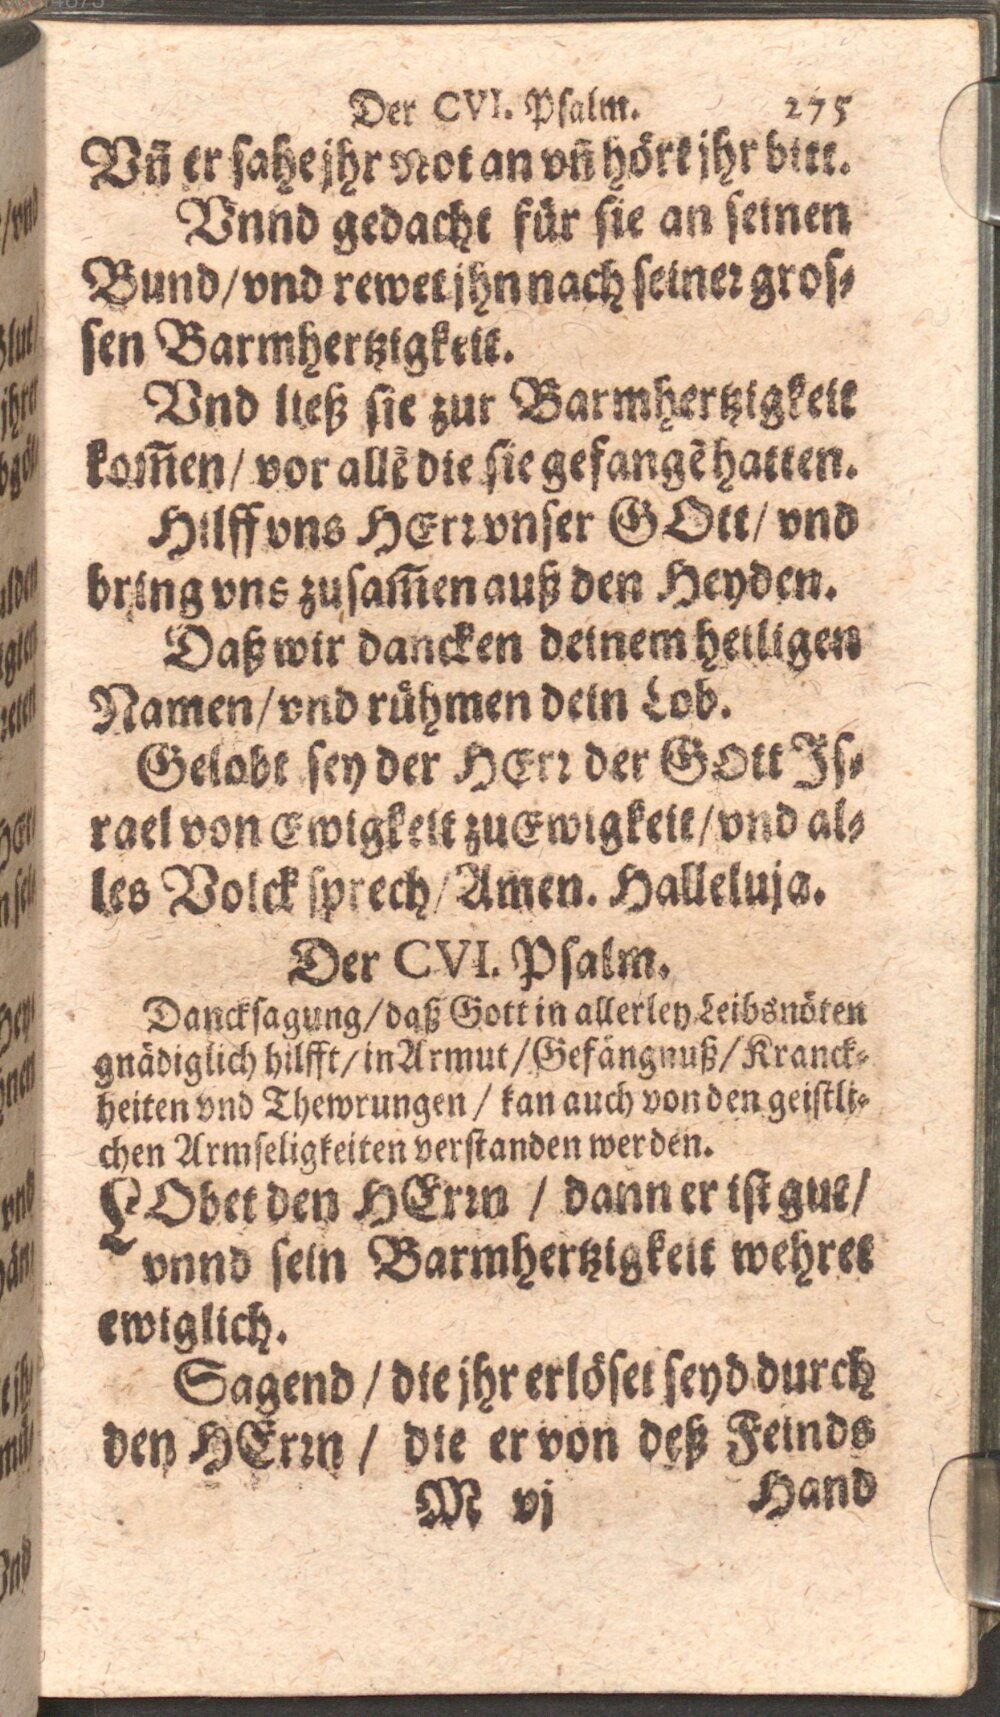 Der CVI. Psalm. 275
Vñ er sahe jhr Not an vñ hört jhr bitt.
Vnnd gedacht für sie an seinen
Bund/ vnd rewet jhn nach seiner gros⸗
sen Barmhertzigkeit.
Vnd ließ sie zur Barmhertzigkeit
kom̃en/ vor allẽ die sie gefangẽ hatten.
Hilff vns HErr vnser GOtt/ vnd
bring vns zusam̃en auß den Heyden.
Daß wir dancken deinem heiligen
Namen/ vnd rühmen dein Lob.
Gelobt sey der HErr der GOtt Is⸗
rael von Ewigkeit zu Ewigkeit/ vnd al⸗
les Volck sprech/ Amen. Halleluja.
Der CVI. Psalm.
Dancksagung/ daß Gott in allerley Leibsnöten
gnädiglich hilfft/ in Armut/ Gefängnuß/ Kranck⸗
heiten vnd Thewrungen/ kan auch von den geistli⸗
chen Armseligkeiten verstanden werden.
LObet den HErrn / dann er ist gut/
vnnd sein Barmhertzigkeit wehret
ewiglich.
Sagend / die jhr erlöset seyd durch
den HErrn / die er von deß Feinds
M vj Hand